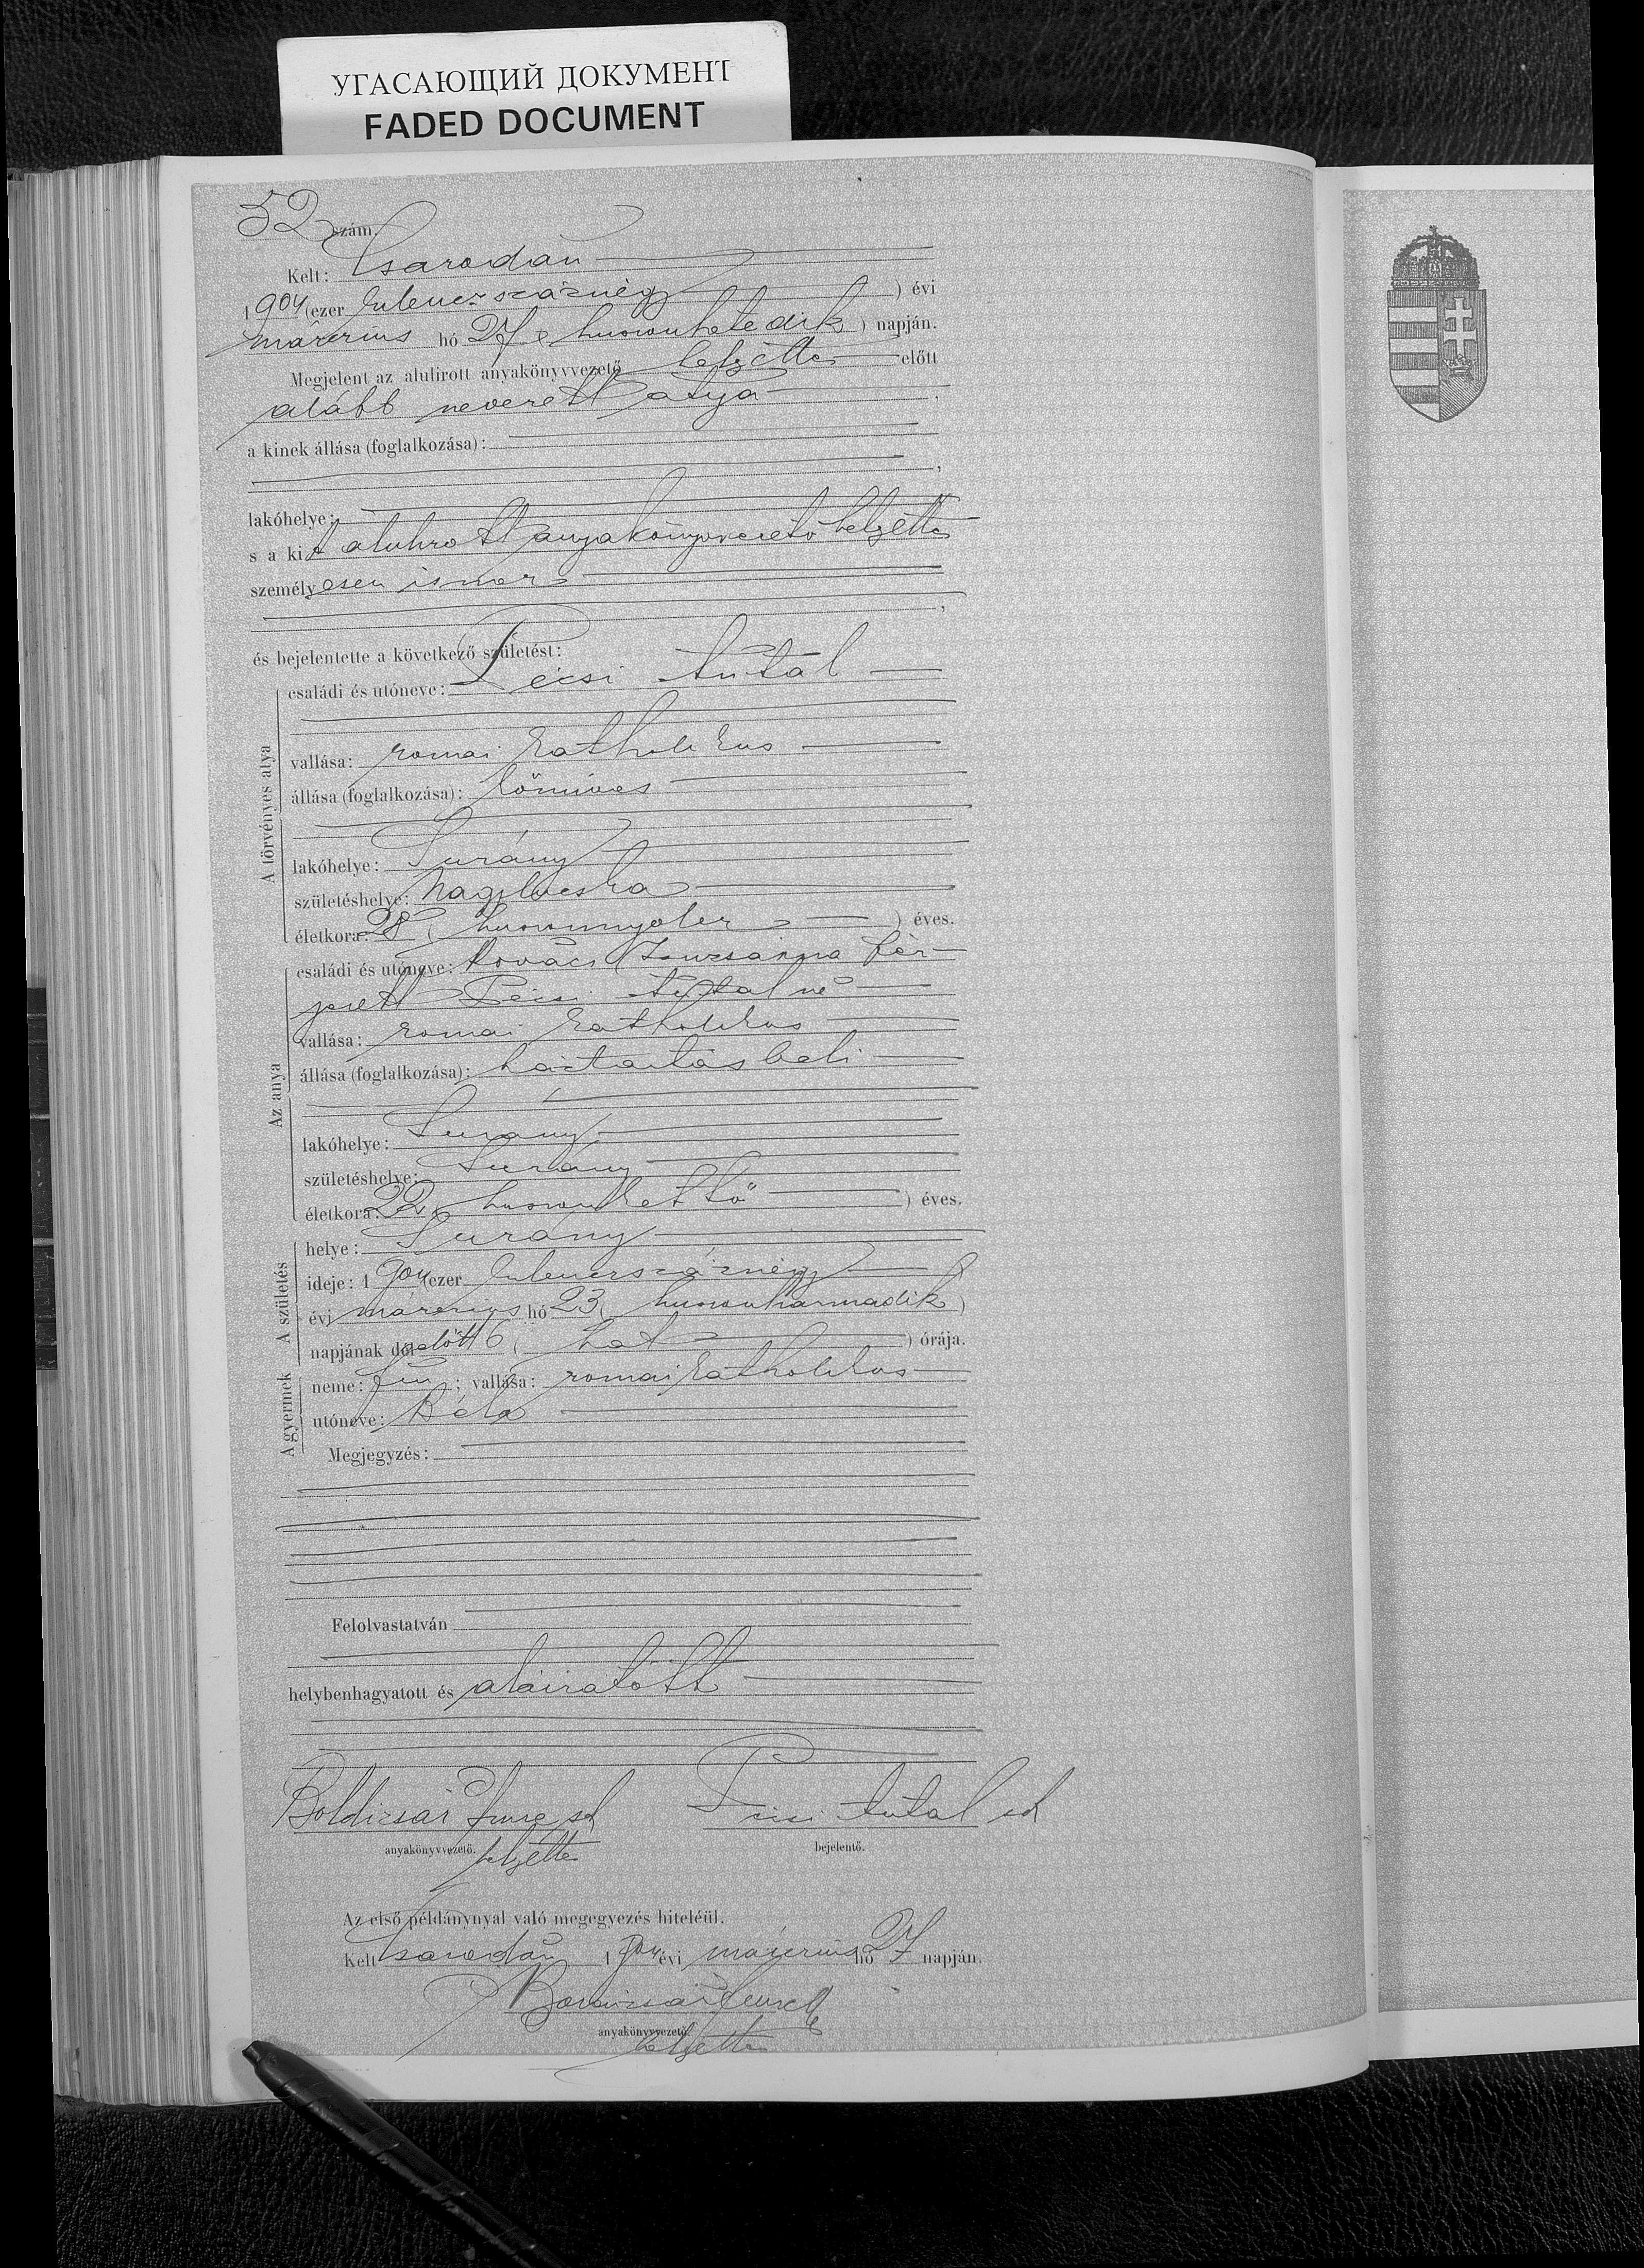 УГАСАЮЩИЙ ДОКУМЕНТ
FADED DOCUMENT
52 szám.
Kelt: Csarodán
1904 (ezer kilenczszáznégy) évi
márczius hó 27 (huszonhetedik) napján.
Megjelent az alulirott anyakönyvvezető helyettes előtt
alább nevezett atya
a kinek állása (foglalkozása):
lakóhelye:
s a kit alulirott anyakönyvvezető helyettes
személyesen ismer
és bejelentette a következő születést:
A törvényes atya
családi és utóneve: Pécsi Antal
vallása: romai katholikus
állása (foglalkozása): kőmives
lakóhelye: Surány
születéshelye:
életkora: 28 (huszonnyolcz) éves.
Az anya
családi és utóneve: Kovács Zsuzsánna fér-
jezett Pécsi Antalné
vallása: romai katholikus
állása (foglalkozása): háztartásbeli
lakóhelye: Surány
születéshelye: Surány
életkora: 22 (huszonkettő) éves.
A születés
helye: Surány
ideje: 1904 (ezer kilenczszáznégy)
évi márczius hó 23 (huszonharmadik)
napjának délelőtt 6 (hat) órája.
A gyermek
neme: fiu; vallása: romai katholikus
utóneve: Béla
Megjegyzés:
Felolvastatván
helybenhagyatott és aláiratott
Boldizsár Imre sk Pécsi Antal sk
anyakönyvvezető. helyettes bejelentő.
Az első példánynyal való megegyezés hiteléül.
Kelt Csarodán 1904 évi márczius hó 27 napján.
Boldizsár Imre
anyakönyvvezető.
helyettes